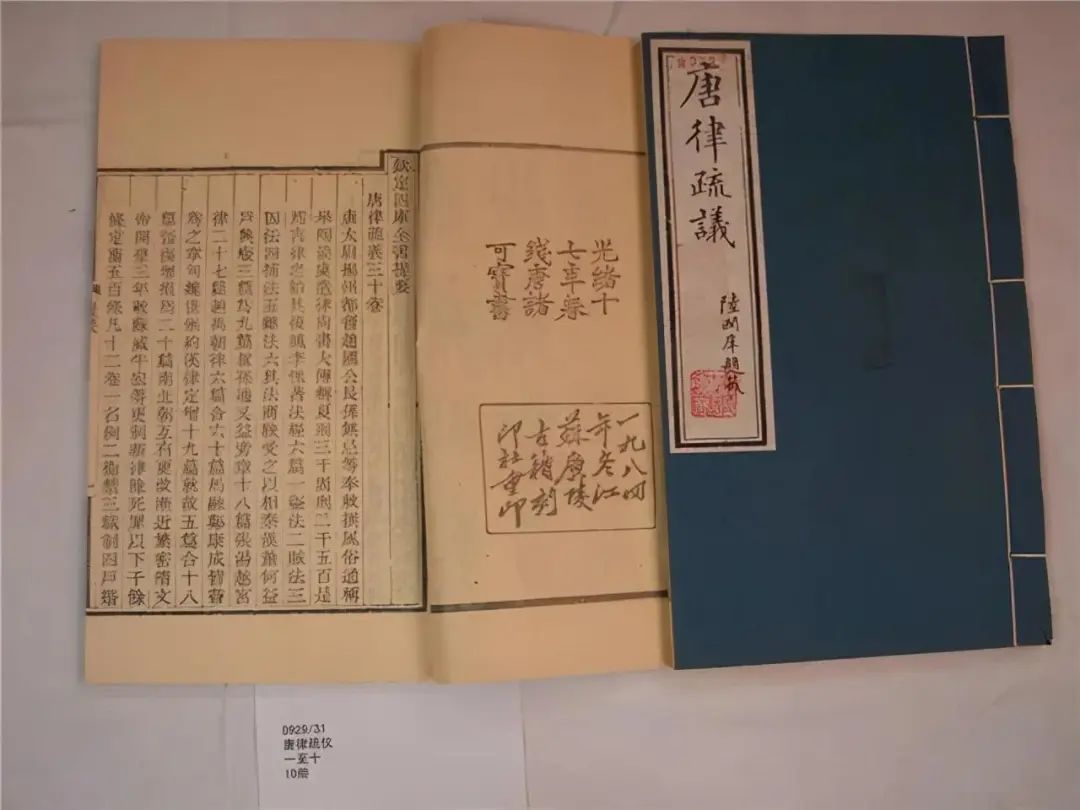 唐律疏議
光緒十
七年
錢唐諸
可寶書
一九八四
年冬江
蘇廣陵
古籍刻
印社重印
欽定四庫全書提要
唐律疏義三十卷
唐太尉揚州都督趙國公長孫無忌等奉敕撰風俗通稱
皋陶謨虞造律尚書大傳稱夏刑三千周刑二千五百是
爲言律之始其後魏李悝著法經六篇一盜法二賊法三
囚法四捕法五雜法六具法商鞅受之以相秦漢蕭何益
戶興廄三篇爲九篇叔孫通又益旁章十八篇張湯越宮
律二十七篇趙禹朝律六篇合六十篇馬融鄭康成皆嘗
爲之章句魏世刪約漢律定增十九篇就故五篇合十八
篇晉復增損爲二十篇南北朝互有更改漸近繁密隋文
帝開皇三年敕蘇威牛宏等更制新律除死罪以下千餘
條定留五百條凡十二卷一名例二衛禁三職制四戶婚
D929/31
唐律疏仪
一至十
10册